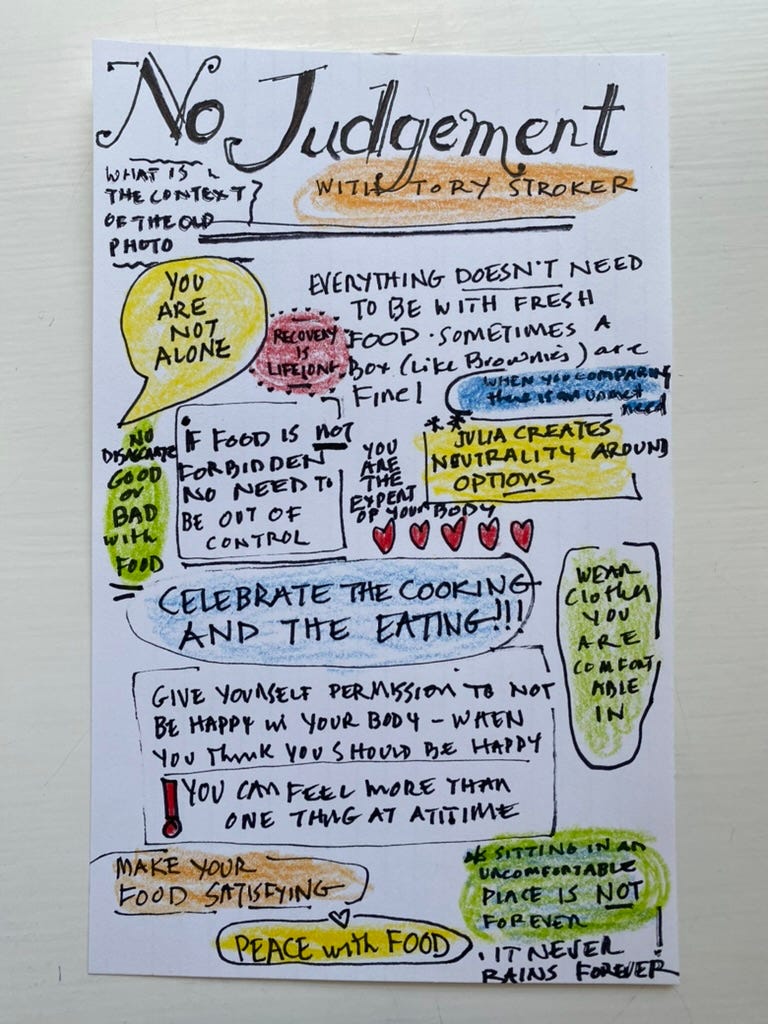 No Judgement
WITH TORY STROKER
WHAT IS
THE CONTEXT
OF THE OLD
PHOTO
YOU
ARE
NOT
ALONE
RECOVERY
IS
LIFELONG
EVERYTHING DOESN'T NEED
TO BE WITH FRESH
FOOD. SOMETIMES A
Box (like Brownies) are
Fine!
WHEN YOU COMPARING
there is an unmet
need
NO
GOOD
or
BAD
with
FOOD
IF FOOD IS NOT
FORBIDDEN
NO NEED TO
BE OUT OF
CONTROL
YOU
ARE
THE
EXPERT
OF YOUR BODY
** JULIA CREATES
NEUTRALITY AROUND
OPTIONS
CELEBRATE THE COOKING
AND THE EATING!!!
WEAR
Clothes
YOU
ARE
COMFORT
ABLE
IN
GIVE YOURSELF PERMISSION TO NOT
BE HAPPY in YOUR BODY - WHEN
YOU Think YOU SHOULD BE HAPPY
! YOU CAN FEEL MORE THAN
ONE THNG AT ATITIME
MAKE YOUR
FOOD SATISFYING
PEACE with FOOD
SITTING IN AN
UNCOMFORTABLE
PLACE IS NOT
FOREVER
. IT NEVER
RAINS FOREVER!